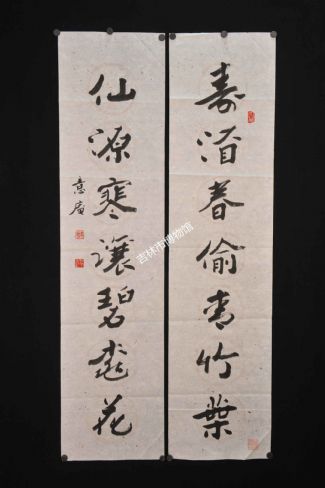 寿春偷青竹葉
仙源寒瀼碧桃花
意庵
吉林市博物馆